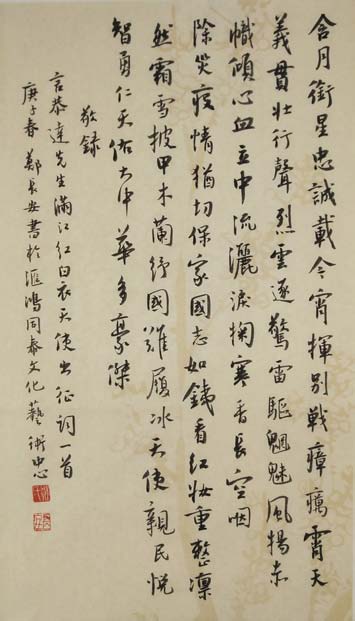 含月銜星忠誠載今宵揮別戰瘴癘霄天
義貫壮行聲烈雲逐驚雷驅魍魅風揚赤
幟傾心血立中流灑淚掬寒香長空咽
除災疫情猶切保家國志如鉄看紅妝重整凜
然霜雪披甲木蘭紓國難履冰天使親民悦
智勇仁天佑大中華多豪傑
敬録
言恭達先生滿江紅白衣天使出征詞一首
庚子春鄭長安書於滙鴻同泰文化藝術中心